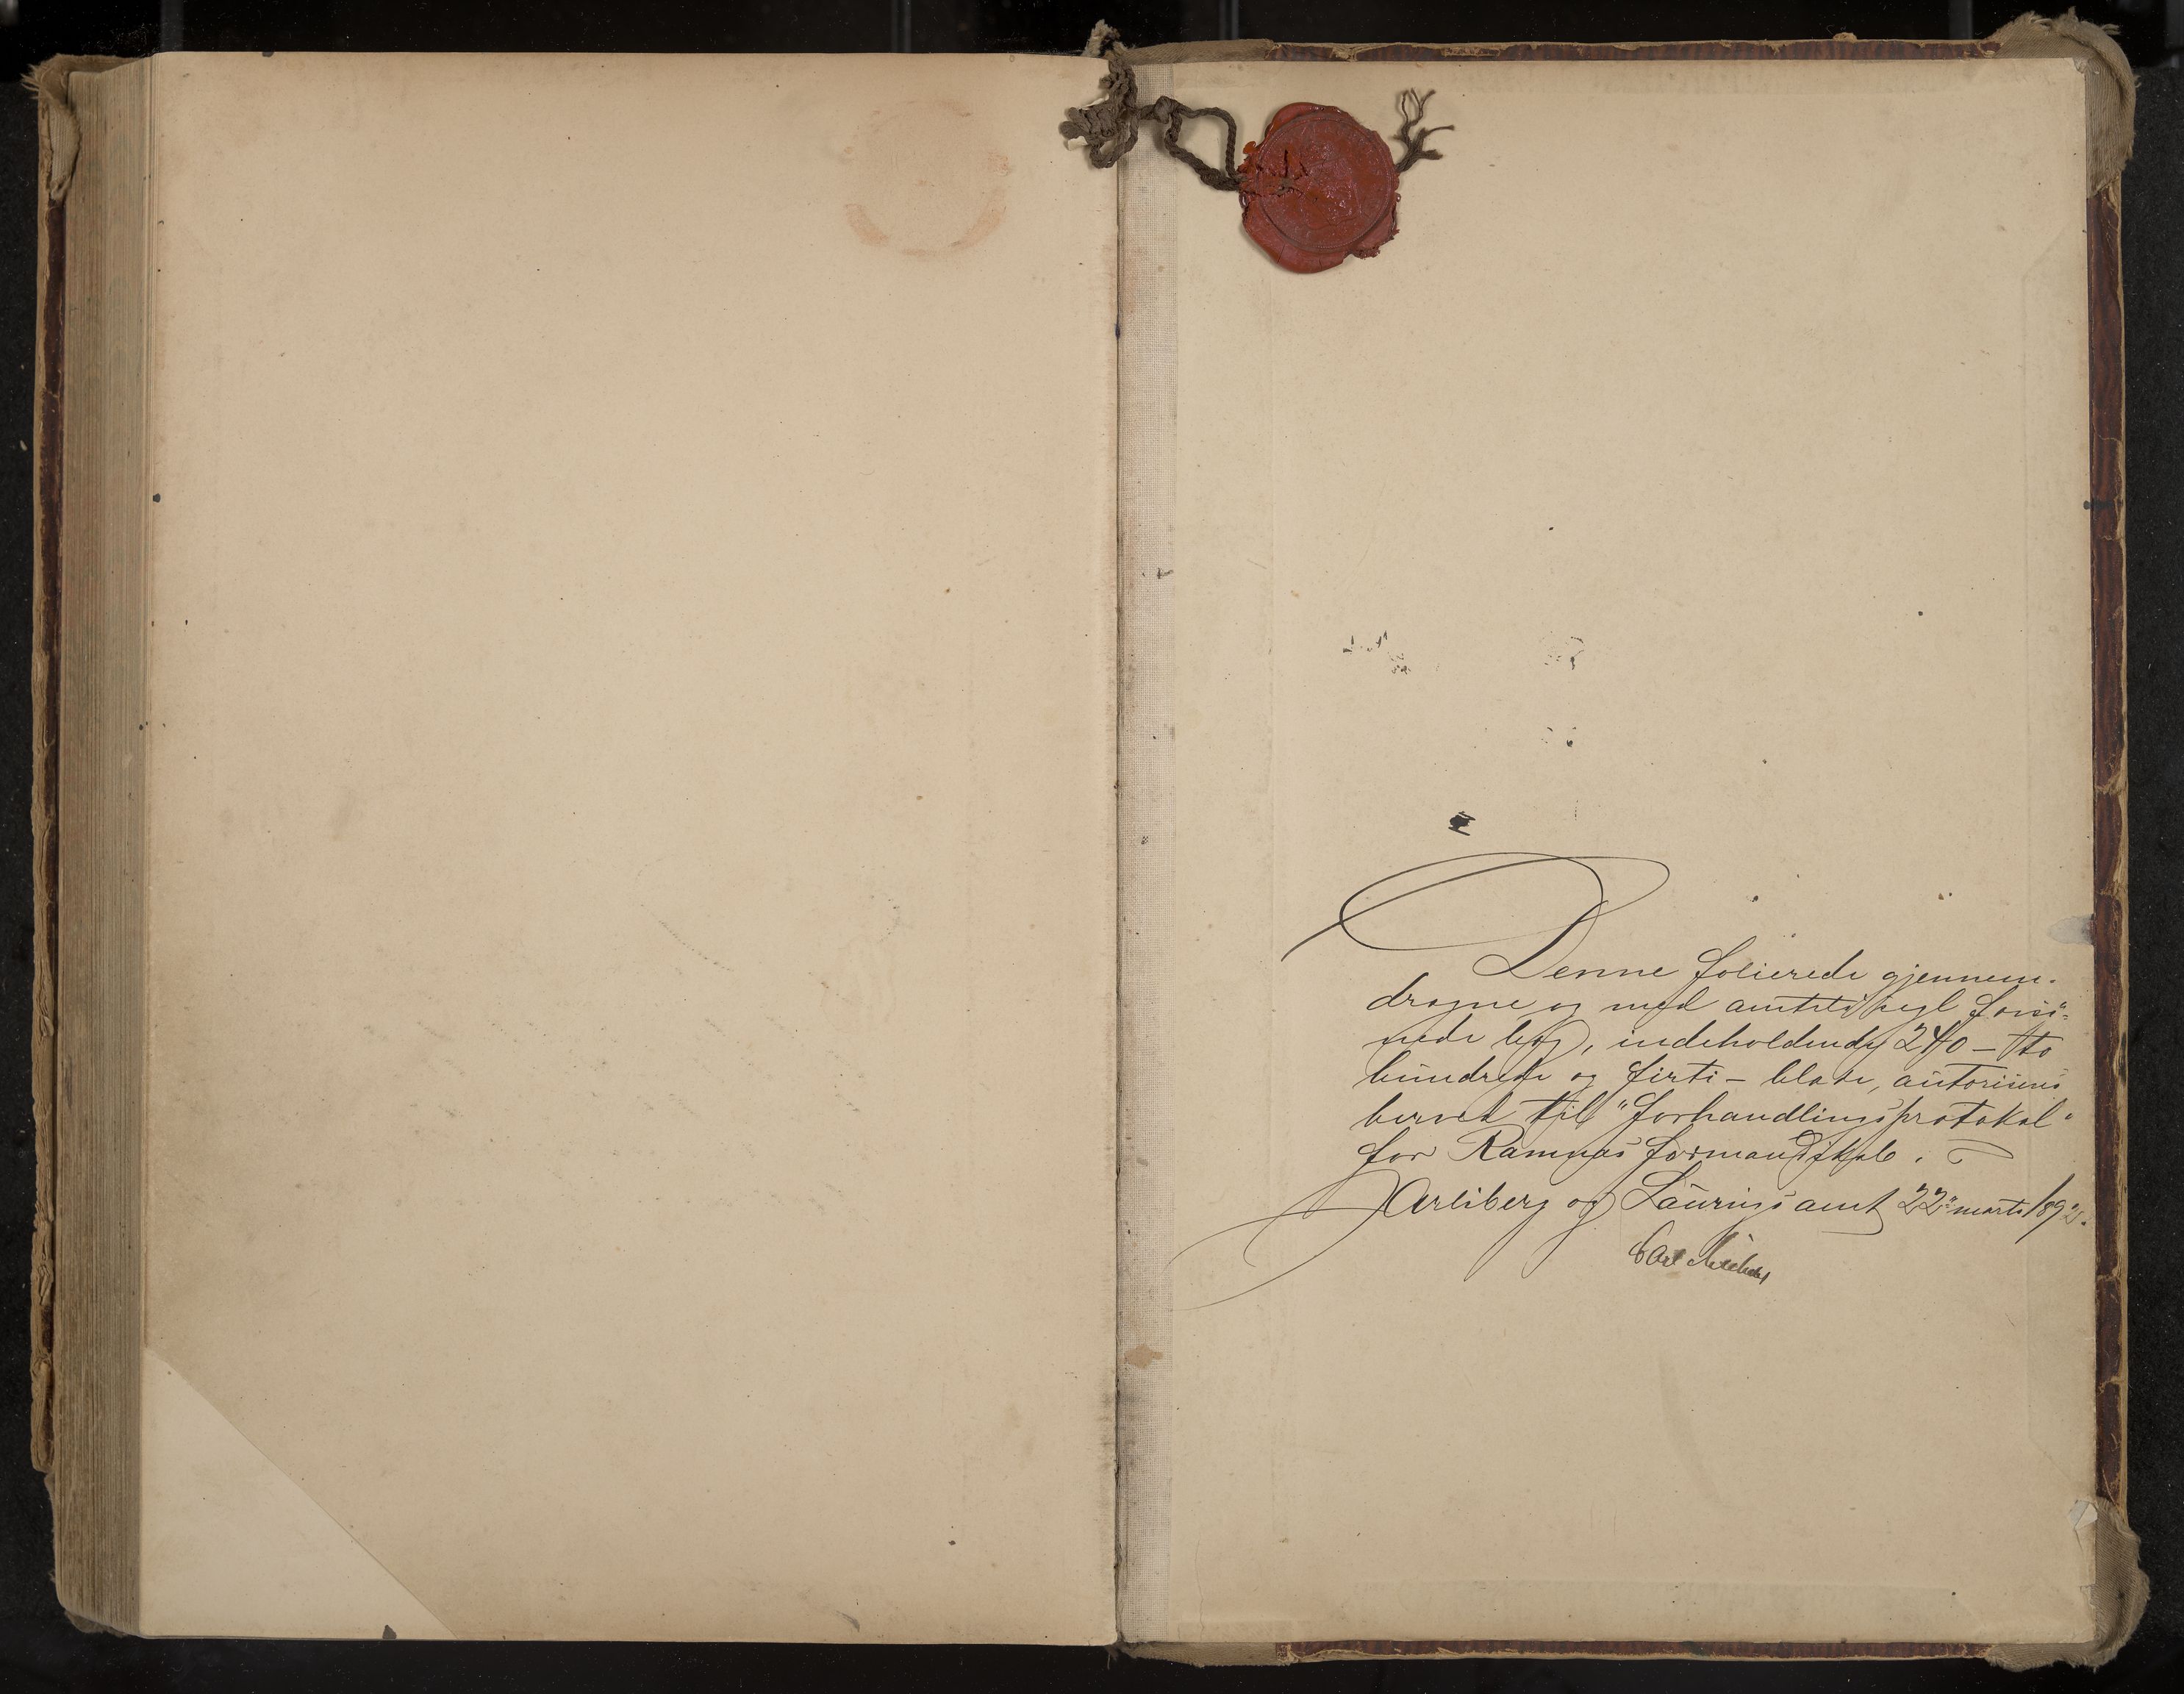 Denne folierede gjennem-
dragne og med amtets segl forsy-
nede bog, indeholdende 240 – to
hundrede og firti – blade, autoriseres
herved til "forhandlingsprotokol"
for Ramnæs formandskab.
Jarlsberg og Laurvigs amt 22 marts
Carl